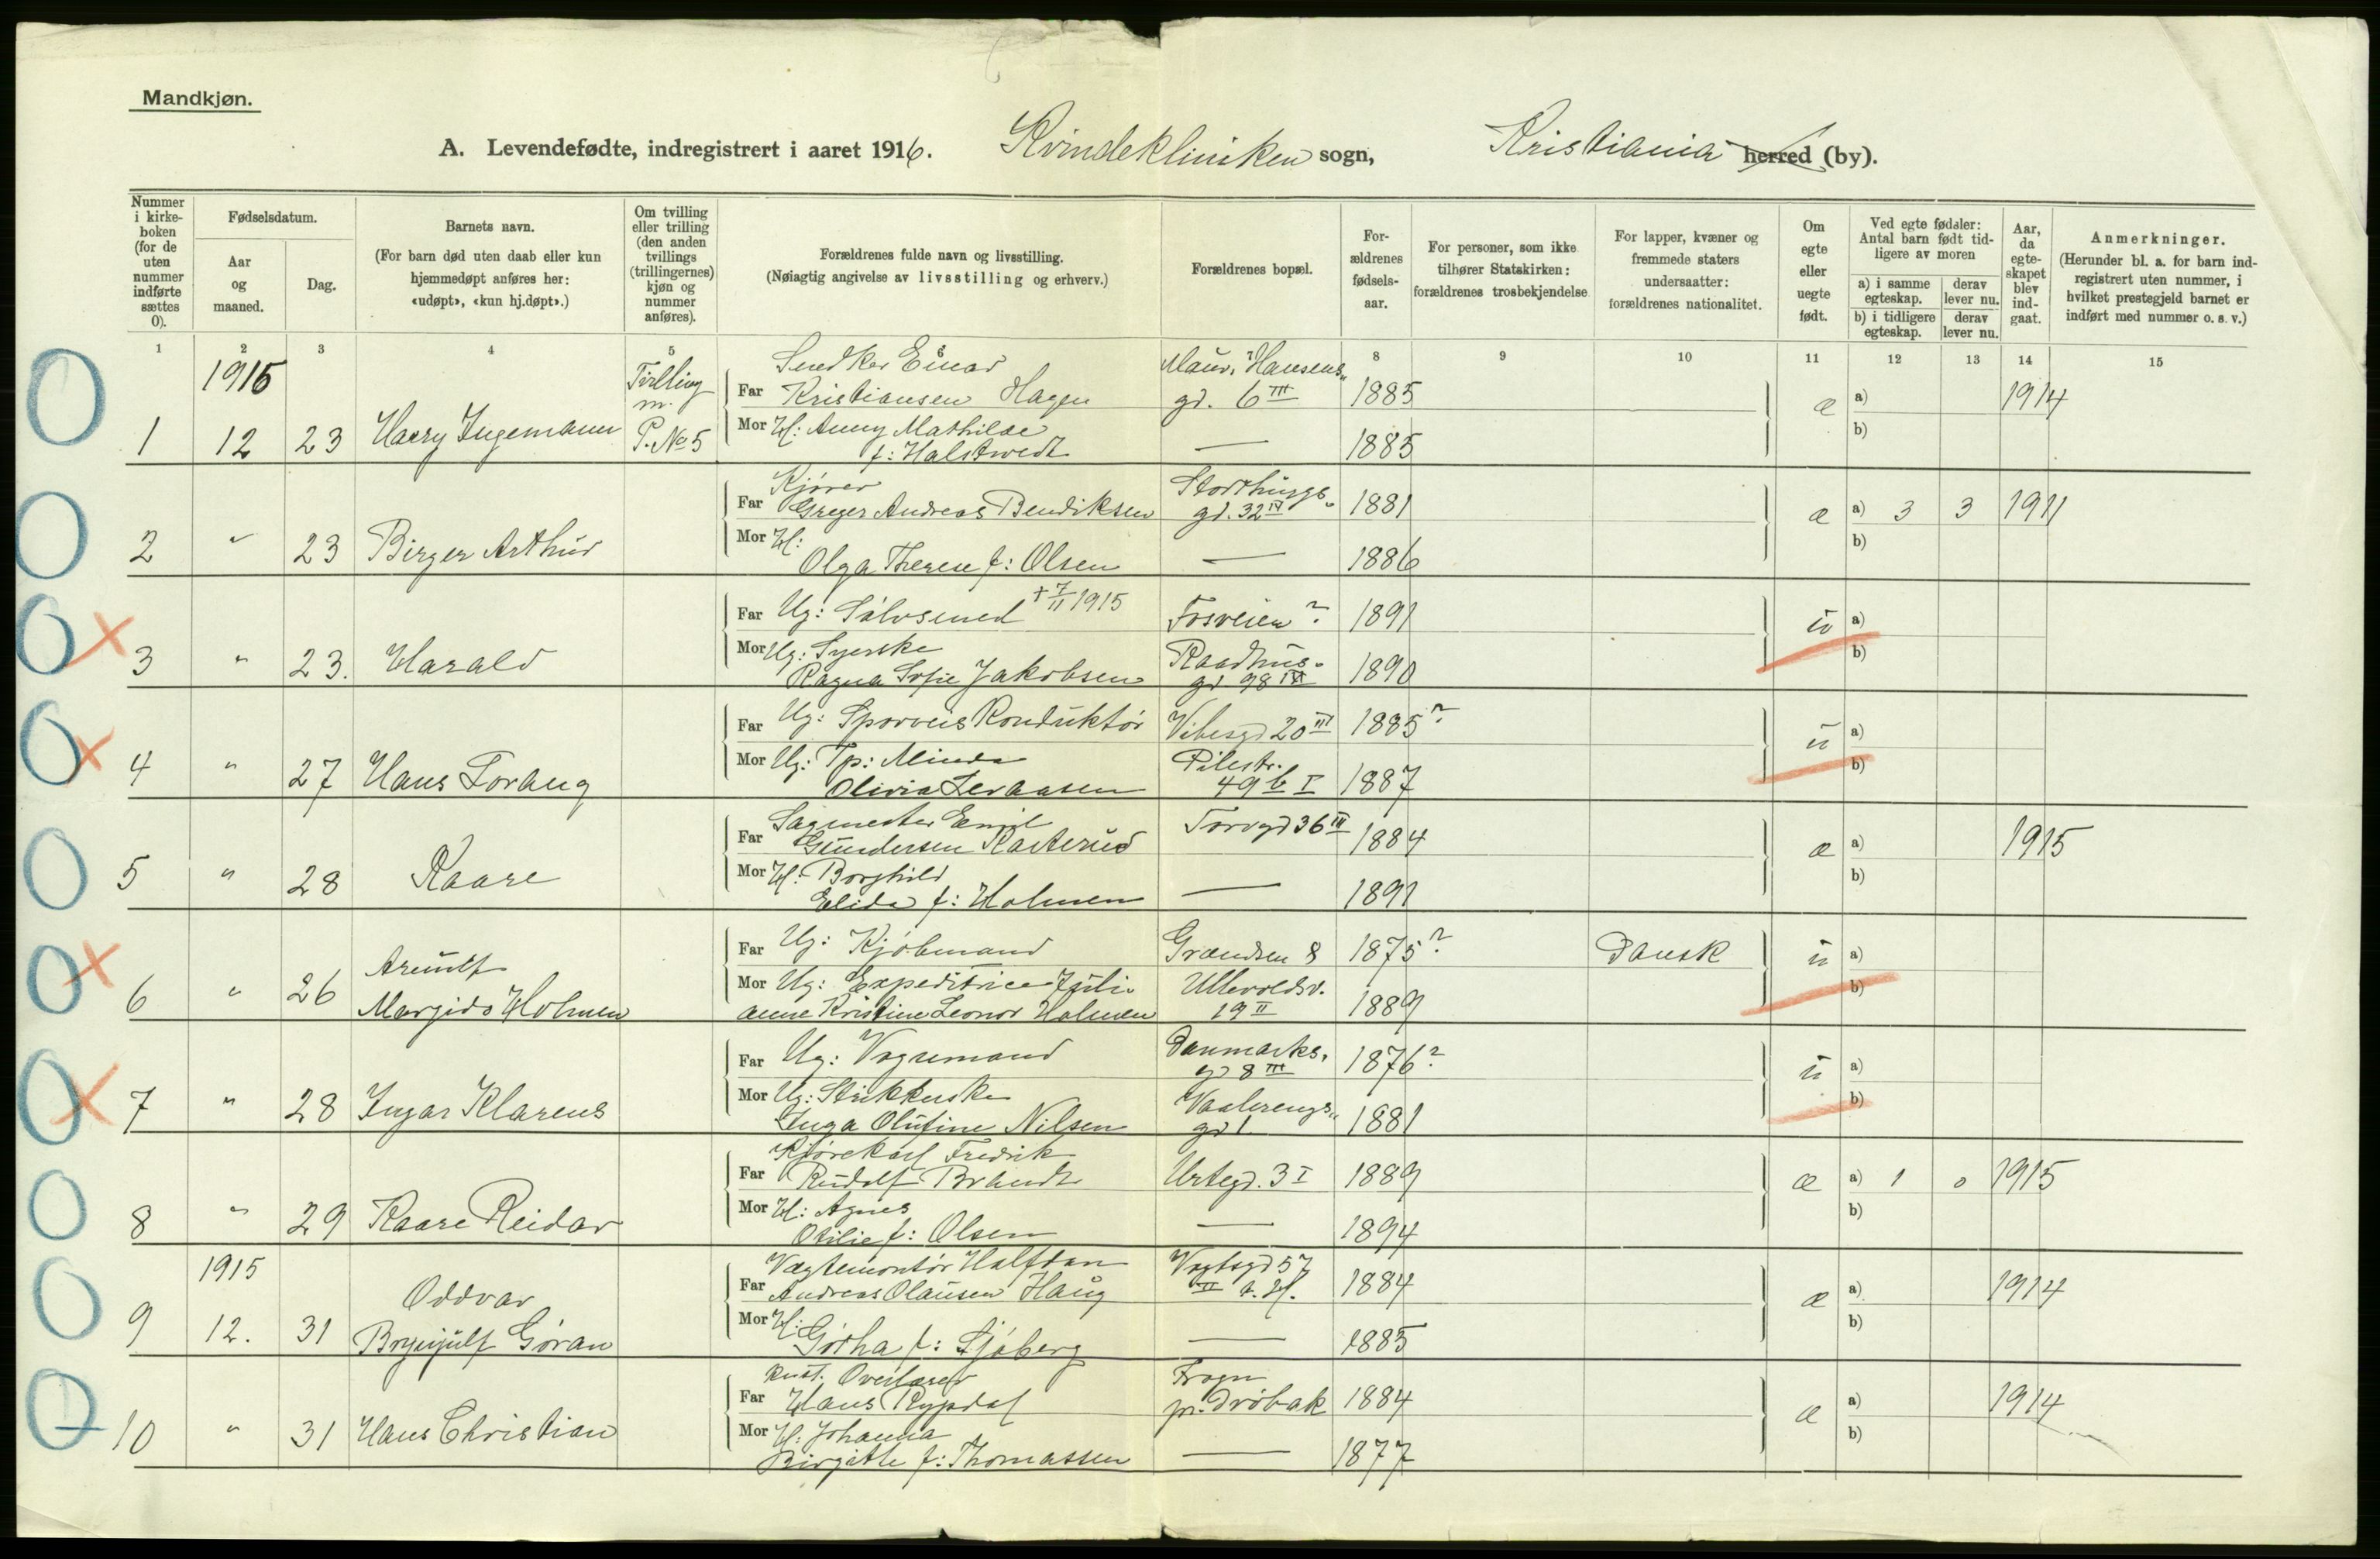 Mandkjøn.
A. Levendefødte, indregistrert i aaret 1916. Kvindekliniken sogn, Kristiania herred (by).
Nummer i kirke-boken (for de uten nummer indførte sættes 0).
Fødselsdatum.
Aar og maaned.
Dag.
Barnets navn.
(For barn død uten daab eller kun hjemmedøpt anføres her: «udøpt», «kun hj.døpt».)
Om tvilling eller trilling (den anden tvillings (trillingernes) kjøn og nummer anføres).
Forældrenes fulde navn og livsstilling.
(Nøiagtig angivelse av livsstilling og erhverv.)
Forældrenes bopæl.
For-ældrenes fødsels-aar.
For personer, som ikke tilhører Statskirken: forældrenes trosbekjendelse
For lapper, kvæner og fremmede staters undersaatter: forældrenes nationalitet.
Om egte eller uegte født.
Ved egte fødsler: Antal barn født tid-ligere av moren
a) i samme egteskap.
derav lever nu.
b) i tidligere egteskap.
derav lever nu.
Aar, da egte-skapet blev ind-gaat.
Anmerkninger.
(Herunder bl. a. for barn ind-registrert uten nummer, i hvilket prestegjeld barnet er indført med nummer o. s. v.)
1 2 3 4 5 6 7 8 9 10 11 12 13 14 15
1915
Tvilling m. P. No 5
Snedker Einar
Far Kristiansen Hagen
Maur. Hansens gd. 6 III 1885 æ a) 1914
1 12 23 Harry Ingemann
Mor H: Anny Mathilde
f: Halstvedt — 1885 b)
Kjører
Far Greger Andreas Bendiksen Storthings gd. 32 IV 1881 æ a) 3 3 1911
2 " 23 Birger Arthur
Mor H:
Olga Therese f: Olsen — 1886 b)
Far Ug: Sølvsmed + 7/11 1915 Fosveien ? 1891 u a)
3 " 23. Harald
Mor Ug: Syerske
Ragna Sofie Jakobsen Raadhus gd. 98 IV 1890 b)
Far Ug: Sporveis Konduktør Vibesgd 20 III 1885? u a)
4 " 27 Hans Torang
Mor Ug: Tp: Minda
Olivia Levaasen Pilestr. 49 b I 1887 b)
Sagmester Emil
Far Gundersen Kasterud Torvgd 36 III 1884 æ a) 1915
5 " 28 Kaare
Mor H: Borghild
Elida f: Holmen — 1891 b)
Far Ug: Kjøbmand Grændsen 8 1875? Dansk u a)
6 " 26 Arnulf
Margido Holmen
Mor Ug: Expeditrice Juli-
anne Kristine Leonor Holmen Ullevoldsv. 19 II 1889 b)
Far Ug: Vognmand Danmarks gd 8 III 1876? u a)
7 " 28 Ingar Klarens
Mor Ug: Strikkerske
Inga Olufine Nilsen Vaalerengs gd 1 1881 b)
Kjørekarl Fredrik
Far Rudolf Brandt Urtegd. 3 I 1889 æ a) 1 0 1915
8 " 29 Kaare Reidar
Mor H: Agnes
Otilie f: Olsen — 1894 b)
1915
Vægtemontør Halfdan
Far Andreas Olausen Haug Vogtsgd 57 II o. H. 1884 æ a) 1914
9 12. 31 Oddvar
Brynjulf Gøran
Mor H:
Gøtha f: Sjøberg — 1885 b)
Const. Overlærer
Far Hans Rypdal Frogn pr. Drøbak 1884 æ a) 1914
10 " 31 Hans Christian
Mor H: Johanna
Birgitte f: Thomassen — 1877 b)